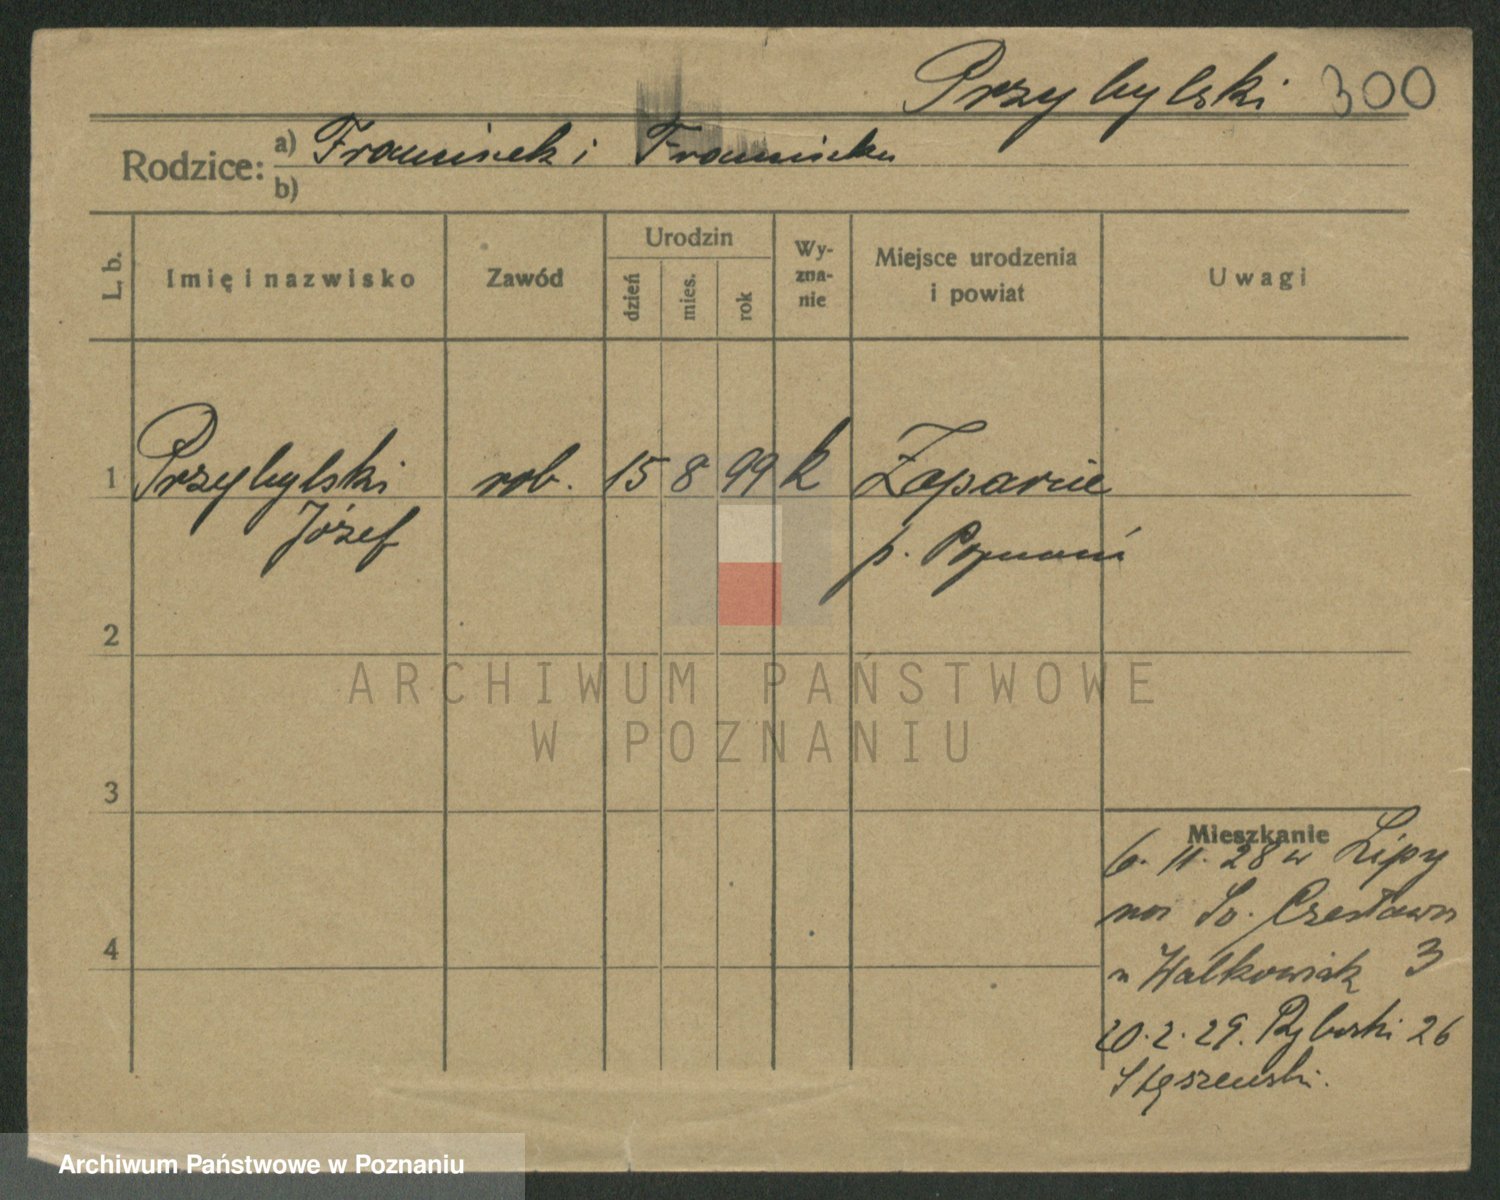 Przybylski 300
Rodzice: a) Franciszek i Franciszka
b)
L. b. Imię i nazwisko Zawód Urodzin dzień mies. rok Wy-zna-nie Miejsce urodzenia i powiat Uwagi
1 Przybylski rob. 15 8 99 k
Józef p. Poznań
2
3
4
Mieszkanie
6. 11. 28 w Lipy
Św. Czesława
u Walkowiak 3
20. 2. 29. 26
Stęszewski.
ARCHIWUM PAŃSTWOWE
W POZNANIU
Archiwum Państwowe w Poznaniu